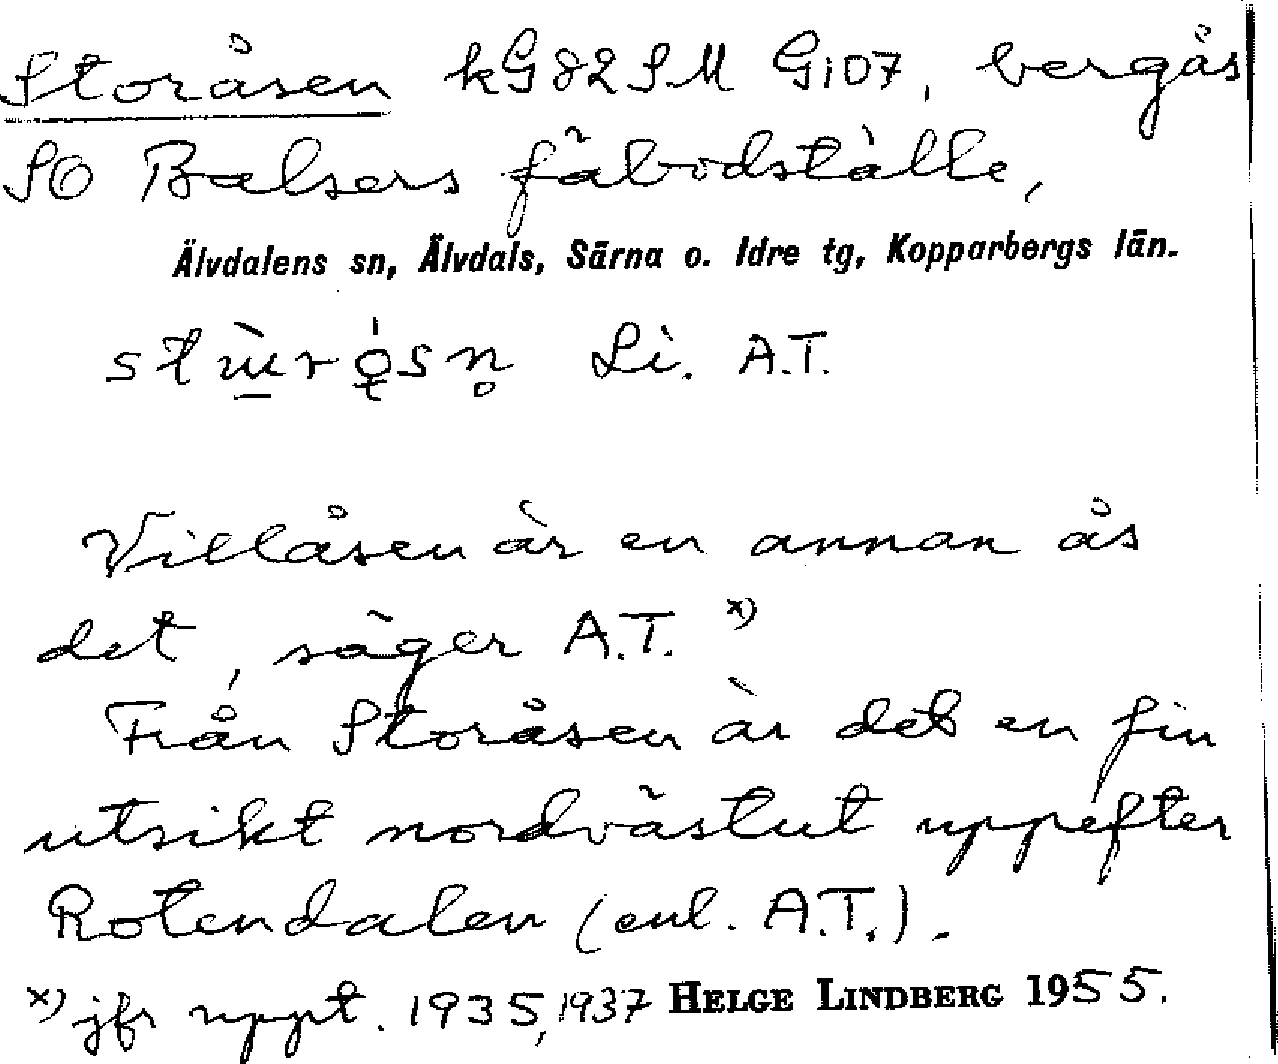 Storåsen kG82SM G107, bergås
SO Balsers fäbodställe,
Älvdalens sn, Älvdals, Särna o. Idre tg, Kopparbergs län.
Li. A.T.
Villåsen är en annan ås
det, säger A.T. x)
Från Storåsen är det en fin
utsikt nordvästut uppefter
Rotendalen (enl. A.T.).
x) jfr uppt. 1935, 1937 HELGE LINDBERG 1955.